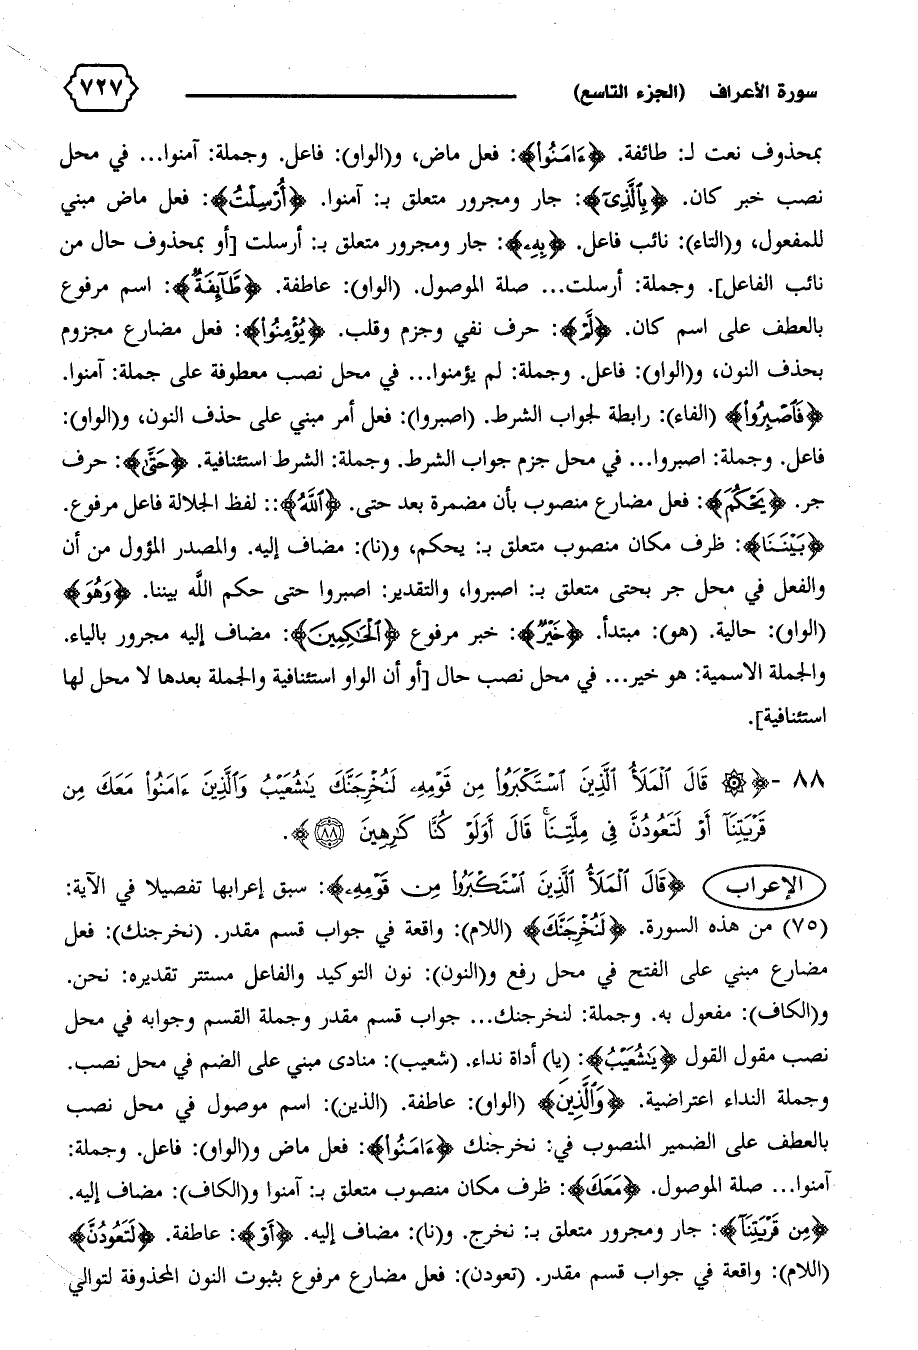 سورة الأعراف (الجزء التاسع) ٧٢٧
بمحذوف نعت لـ: طائفة. ﴿ءَامَنُوا۟﴾: فعل ماض، و(الواو): فاعل. وجملة: آمنوا... في محل
نصب خبر كان. ﴿بِٱلَّذِىٓ﴾: جار ومجرور متعلق بـ: آمنوا. ﴿أُرْسِلْتُ﴾: فعل ماض مبني
للمفعول، و(التاء): نائب فاعل. ﴿بِهِۦ﴾: جار ومجرور متعلق بـ: أرسلت [أو بمحذوف حال من
نائب الفاعل]. وجملة: أرسلت... صلة الموصول. (الواو): عاطفة. ﴿طَآئِفَةٌ﴾: اسم مرفوع
بالعطف على اسم كان. ﴿لَّمْ﴾: حرف نفي وجزم وقلب. ﴿يُؤْمِنُوا۟﴾: فعل مضارع مجزوم
بحذف النون، و(الواو): فاعل. وجملة: لم يؤمنوا... في محل نصب معطوفة على جملة: آمنوا.
﴿فَٱصْبِرُوا۟﴾ (الفاء): رابطة لجواب الشرط. (اصبروا): فعل أمر مبني على حذف النون، و(الواو):
فاعل. وجملة: اصبروا... في محل جزم جواب الشرط. وجملة: الشرط استئنافية. ﴿حَتَّىٰ﴾: حرف
جر. ﴿يَحْكُمَ﴾: فعل مضارع منصوب بأن مضمرة بعد حتى. ﴿ٱللَّهُ﴾:: لفظ الجلالة فاعل مرفوع.
﴿بَيْنَنَا﴾: ظرف مكان منصوب متعلق بـ: يحكم، و(نا): مضاف إليه. والمصدر المؤول من أن
والفعل في محل جر بحتى متعلق بـ: اصبروا، والتقدير: اصبروا حتى حكم اللّه بيننا. ﴿وَهُوَ﴾
(الواو): حالية. (هو): مبتدأ. ﴿خَيْرُ﴾: خبر مرفوع ﴿ٱلْحَٰكِمِينَ﴾: مضاف إليه مجرور بالياء.
والجملة الاسمية: هو خير... في محل نصب حال [أو أن الواو استئنافية والجملة بعدها لا محل لها
استئنافية].
٨٨ -﴿۞ قَالَ ٱلْمَلَأُ ٱلَّذِينَ ٱسْتَكْبَرُوا۟ مِن قَوْمِهِۦ لَنُخْرِجَنَّكَ يَٰشُعَيْبُ وَٱلَّذِينَ ءَامَنُوا۟ مَعَكَ مِن
قَرْيَتِنَآ أَوْ لَتَعُودُنَّ فِى مِلَّتِنَا ۚ قَالَ أَوَلَوْ كُنَّا كَٰرِهِينَ ٨٨﴾.
الإعراب ﴿قَالَ ٱلْمَلَأُ ٱلَّذِينَ ٱسْتَكْبَرُوا۟ مِن قَوْمِهِۦ﴾: سبق إعرابها تفصيلا في الآية:
(٧٥) من هذه السورة. ﴿لَنُخْرِجَنَّكَ﴾ (اللام): واقعة في جواب قسم مقدر. (نخرجنك): فعل
مضارع مبني على الفتح في محل رفع و(النون): نون التوكيد والفاعل مستتر تقديره: نحن.
و(الكاف): مفعول به. وجملة: لنخرجنك... جواب قسم مقدر وجملة القسم وجوابه في محل
نصب مقول القول ﴿يَٰشُعَيْبُ﴾: (يا) أداة نداء. (شعيب): منادى مبني على الضم في محل نصب.
وجملة النداء اعتراضية. ﴿وَٱلَّذِينَ﴾ (الواو): عاطفة. (الذين): اسم موصول في محل نصب
بالعطف على الضمير المنصوب في: نخرجنك ﴿ءَامَنُوا۟﴾: فعل ماض و(الواو): فاعل. وجملة:
آمنوا... صلة الموصول. ﴿مَعَكَ﴾: ظرف مكان منصوب متعلق بـ: آمنوا و(الكاف): مضاف إليه.
﴿مِن قَرْيَتِنَآ﴾: جار ومجرور متعلق بـ: نخرج. و(نا): مضاف إليه. ﴿أَوْ﴾: عاطفة. ﴿لَتَعُودُنَّ﴾
(اللام): واقعة في جواب قسم مقدر. (تعودن): فعل مضارع مرفوع بثبوت النون المحذوفة لتوالي